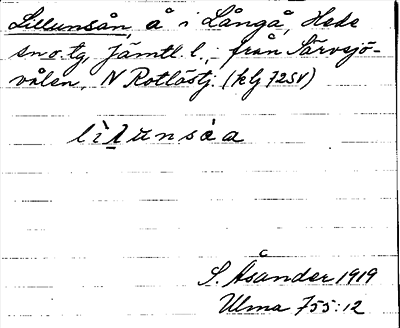 Lillunsån, å i Långå, Hede
sn o. tg, Jämtl. l.; från Särvsjö-
vålen, N Rotlöstj. (klg 72SV)
lìlunsåa
S. Åsander 1919
Ulma 755:12